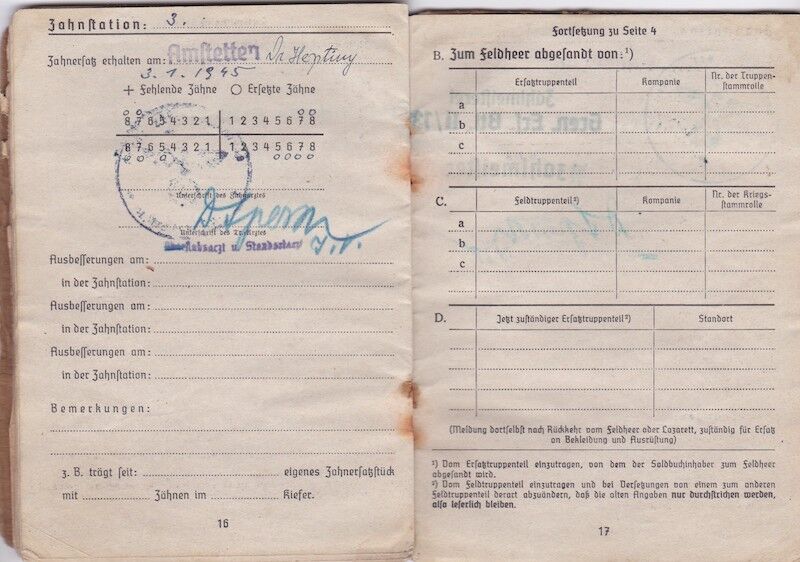 Zahnstation: 3.
Zahnersatz erhalten am: Amstetten
3.1.1945
+ Fehlende Zähne O Ersetzte Zähne
8 7 6 5 4 3 2 1 | 1 2 3 4 5 6 7 8
8 7 6 5 4 3 2 1 | 1 2 3 4 5 6 7 8
Unterschrift des Zahnarztes
Unterschrift des Tr.-Arztes
Oberstabsarzt u. Standortarzt
Ausbesserungen am:
in der Zahnstation:
Ausbesserungen am:
in der Zahnstation:
Ausbesserungen am:
in der Zahnstation:
Bemerkungen:
z. B. trägt seit: eigenes Zahnersatzstück
mit Zähnen im Kiefer.
16
Fortsetzung zu Seite 4
B. Zum Feldheer abgesandt von:¹)
Ersatztruppenteil Kompanie Nr. der Truppen-
stammrolle
a
b
c
C. Feldtruppenteil²) Kompanie Nr. der Kriegs-
stammrolle
a
b
c
D. Jetzt zuständiger Ersatztruppenteil²) Standort
(Meldung dortselbst nach Rückkehr vom Feldheer oder Lazarett, zuständig für Ersatz
an Bekleidung und Ausrüstung)
¹) Vom Ersatztruppenteil einzutragen, von dem der Soldbuchinhaber zum Feldheer
abgesandt wird.
²) Vom Feldtruppenteil einzutragen und bei Versetzungen von einem zum anderen
Feldtruppenteil derart abzuändern, daß die alten Angaben nur durchstrichen werden,
also leserlich bleiben.
17